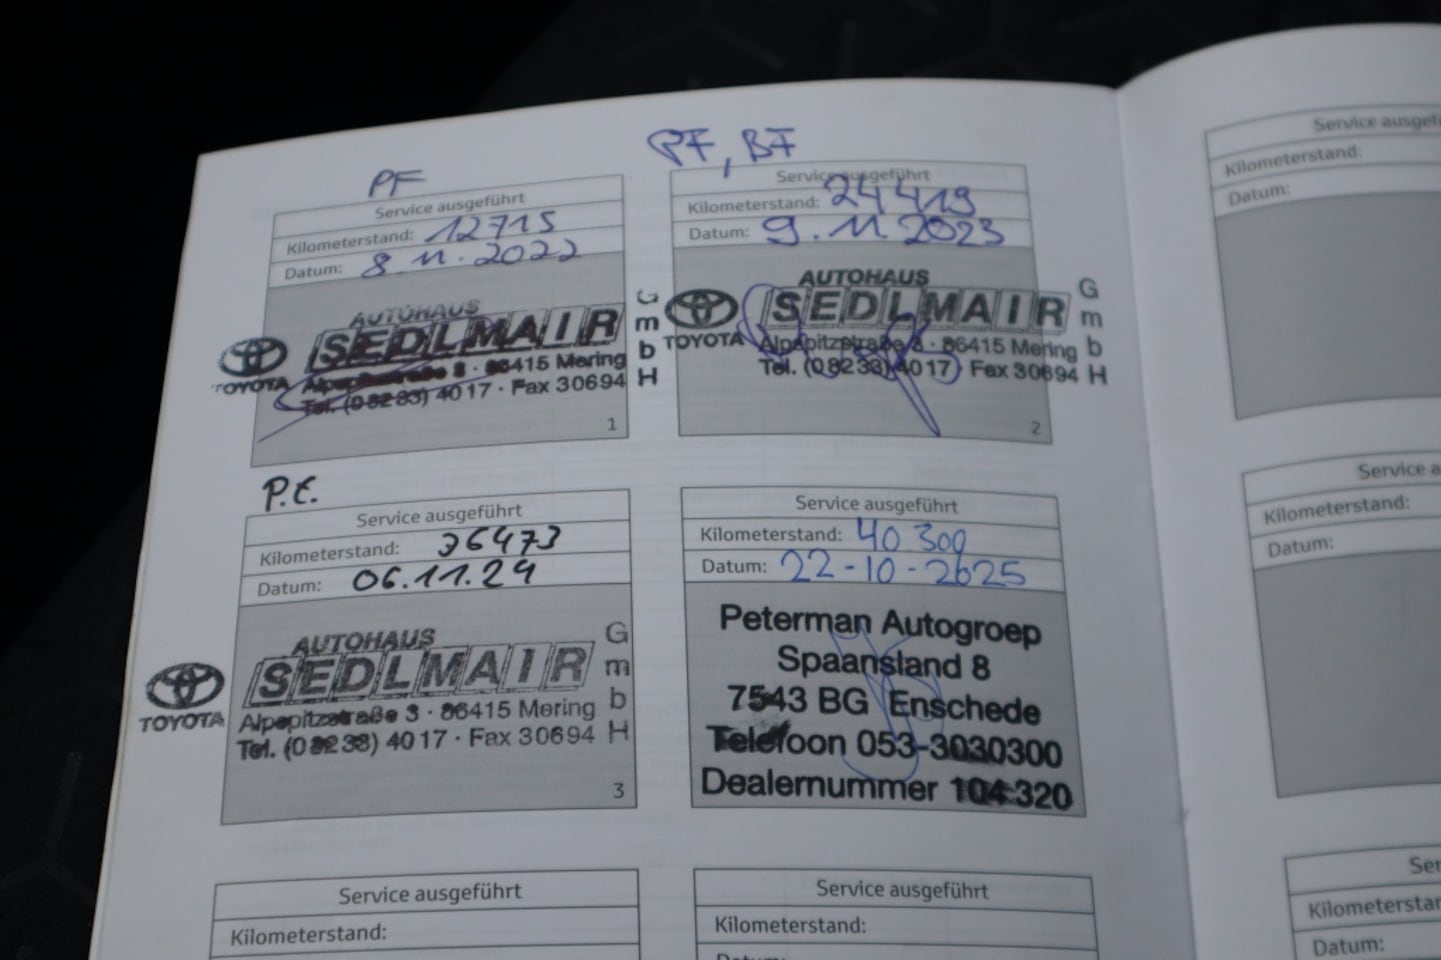 PF
Service ausgeführt
Kilometerstand: 12715
Datum: 8.11.2022
AUTOHAUS
SEDLMAIR
TOYOTA
Alpspitzstraße 3 · 86415 Mering
Tel. (08233) 4017 · Fax 30694
GmbH
1
PF, BF
Service ausgeführt
Kilometerstand: 24419
Datum: 9.11.2023
AUTOHAUS
SEDLMAIR
TOYOTA
Alpspitzstraße 3 · 86415 Mering
Tel. (08233) 4017 · Fax 30694
GmbH
2
P.E.
Service ausgeführt
Kilometerstand: 36473
Datum: 06.11.24
AUTOHAUS
SEDLMAIR
TOYOTA
Alpspitzstraße 3 · 86415 Mering
Tel. (08233) 4017 · Fax 30694
GmbH
3
Service ausgeführt
Kilometerstand: 40 300
Datum: 22-10-2025
Peterman Autogroep
Spaansland 8
7543 BG Enschede
Telefoon 053-3030300
Dealernummer 104 320
Service ausgeführt
Kilometerstand:
Service ausgeführt
Kilometerstand:
Kilometerstand:
Datum:
Kilometerstand:
Datum:
Datum: